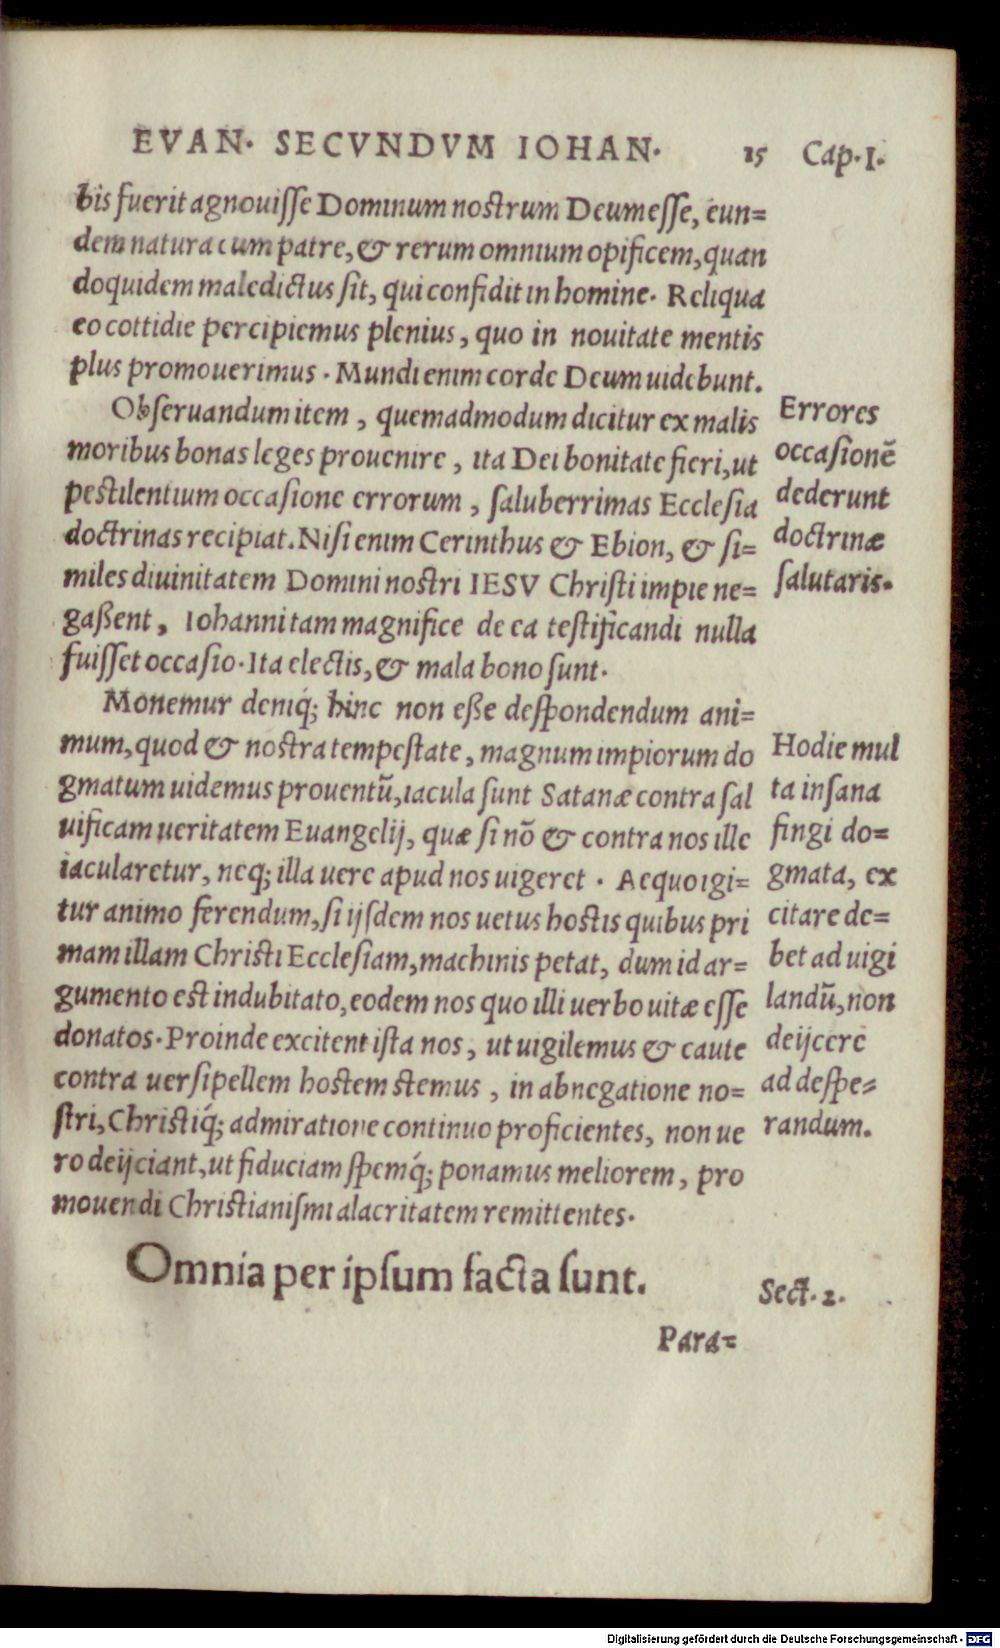 EVAN. SECVNDVM IOHAN. 15 Cap. I.
bis fuerit agnouisse Dominum nostrum Deum esse, eun=
dem natura cum patre, & rerum omnium opificem, quan
doquidem maledictus sit, qui confidit in homine. Reliqua
eo cottidie percipiemus plenius, quo in nouitate mentis
plus promouerimus. Mundi enim corde Deum uidebunt.
Obseruandum item, quemadmodum dicitur ex malis
moribus bonas leges prouenire, ita Dei bonitate fieri, ut
pestilentium occasione errorum, saluberrimas Ecclesia
doctrinas recipiat. Nisi enim Cerinthus & Ebion, & si=
miles diuinitatem Domini nostri IESV Christi impie ne=
gaßent, Iohanni tam magnifice de ea testificandi nulla
fuisset occasio. Ita electis, & mala bono sunt.
Errores
occasionē
dederunt
doctrinæ
salutaris.
Monemur deniq́; hinc non eße despondendum ani=
mum, quod & nostra tempestate, magnum impiorum do
gmatum uidemus prouentū, iacula sunt Satanæ contra sal
uificam ueritatem Euangelij, quæ si nō & contra nos ille
iacularetur, neq; illa uere apud nos uigeret. Aequo igi=
tur animo ferendum, si ijsdem nos uetus hostis quibus pri
mam illam Christi Ecclesiam, machinis petat, dum id ar=
gumento est indubitato, eodem nos quo illi uerbo uitæ esse
donatos. Proinde excitent ista nos, ut uigilemus & caute
contra uersipellem hostem stemus, in abnegatione no=
stri, Christiq́; admiratione continuo proficientes, non ue
ro deijciant, ut fiduciam spemq́; ponamus meliorem, pro
mouendi Christianismi alacritatem remittentes.
Hodie mul
ta insana
fingi do=
gmata, ex
citare de=
bet ad uigi
landū, non
deijcere
ad despe=
randum.
Omnia per ipsum facta sunt.
Sect. 2.
Para=
Digitalisierung gefördert durch die Deutsche Forschungsgemeinschaft - DFG